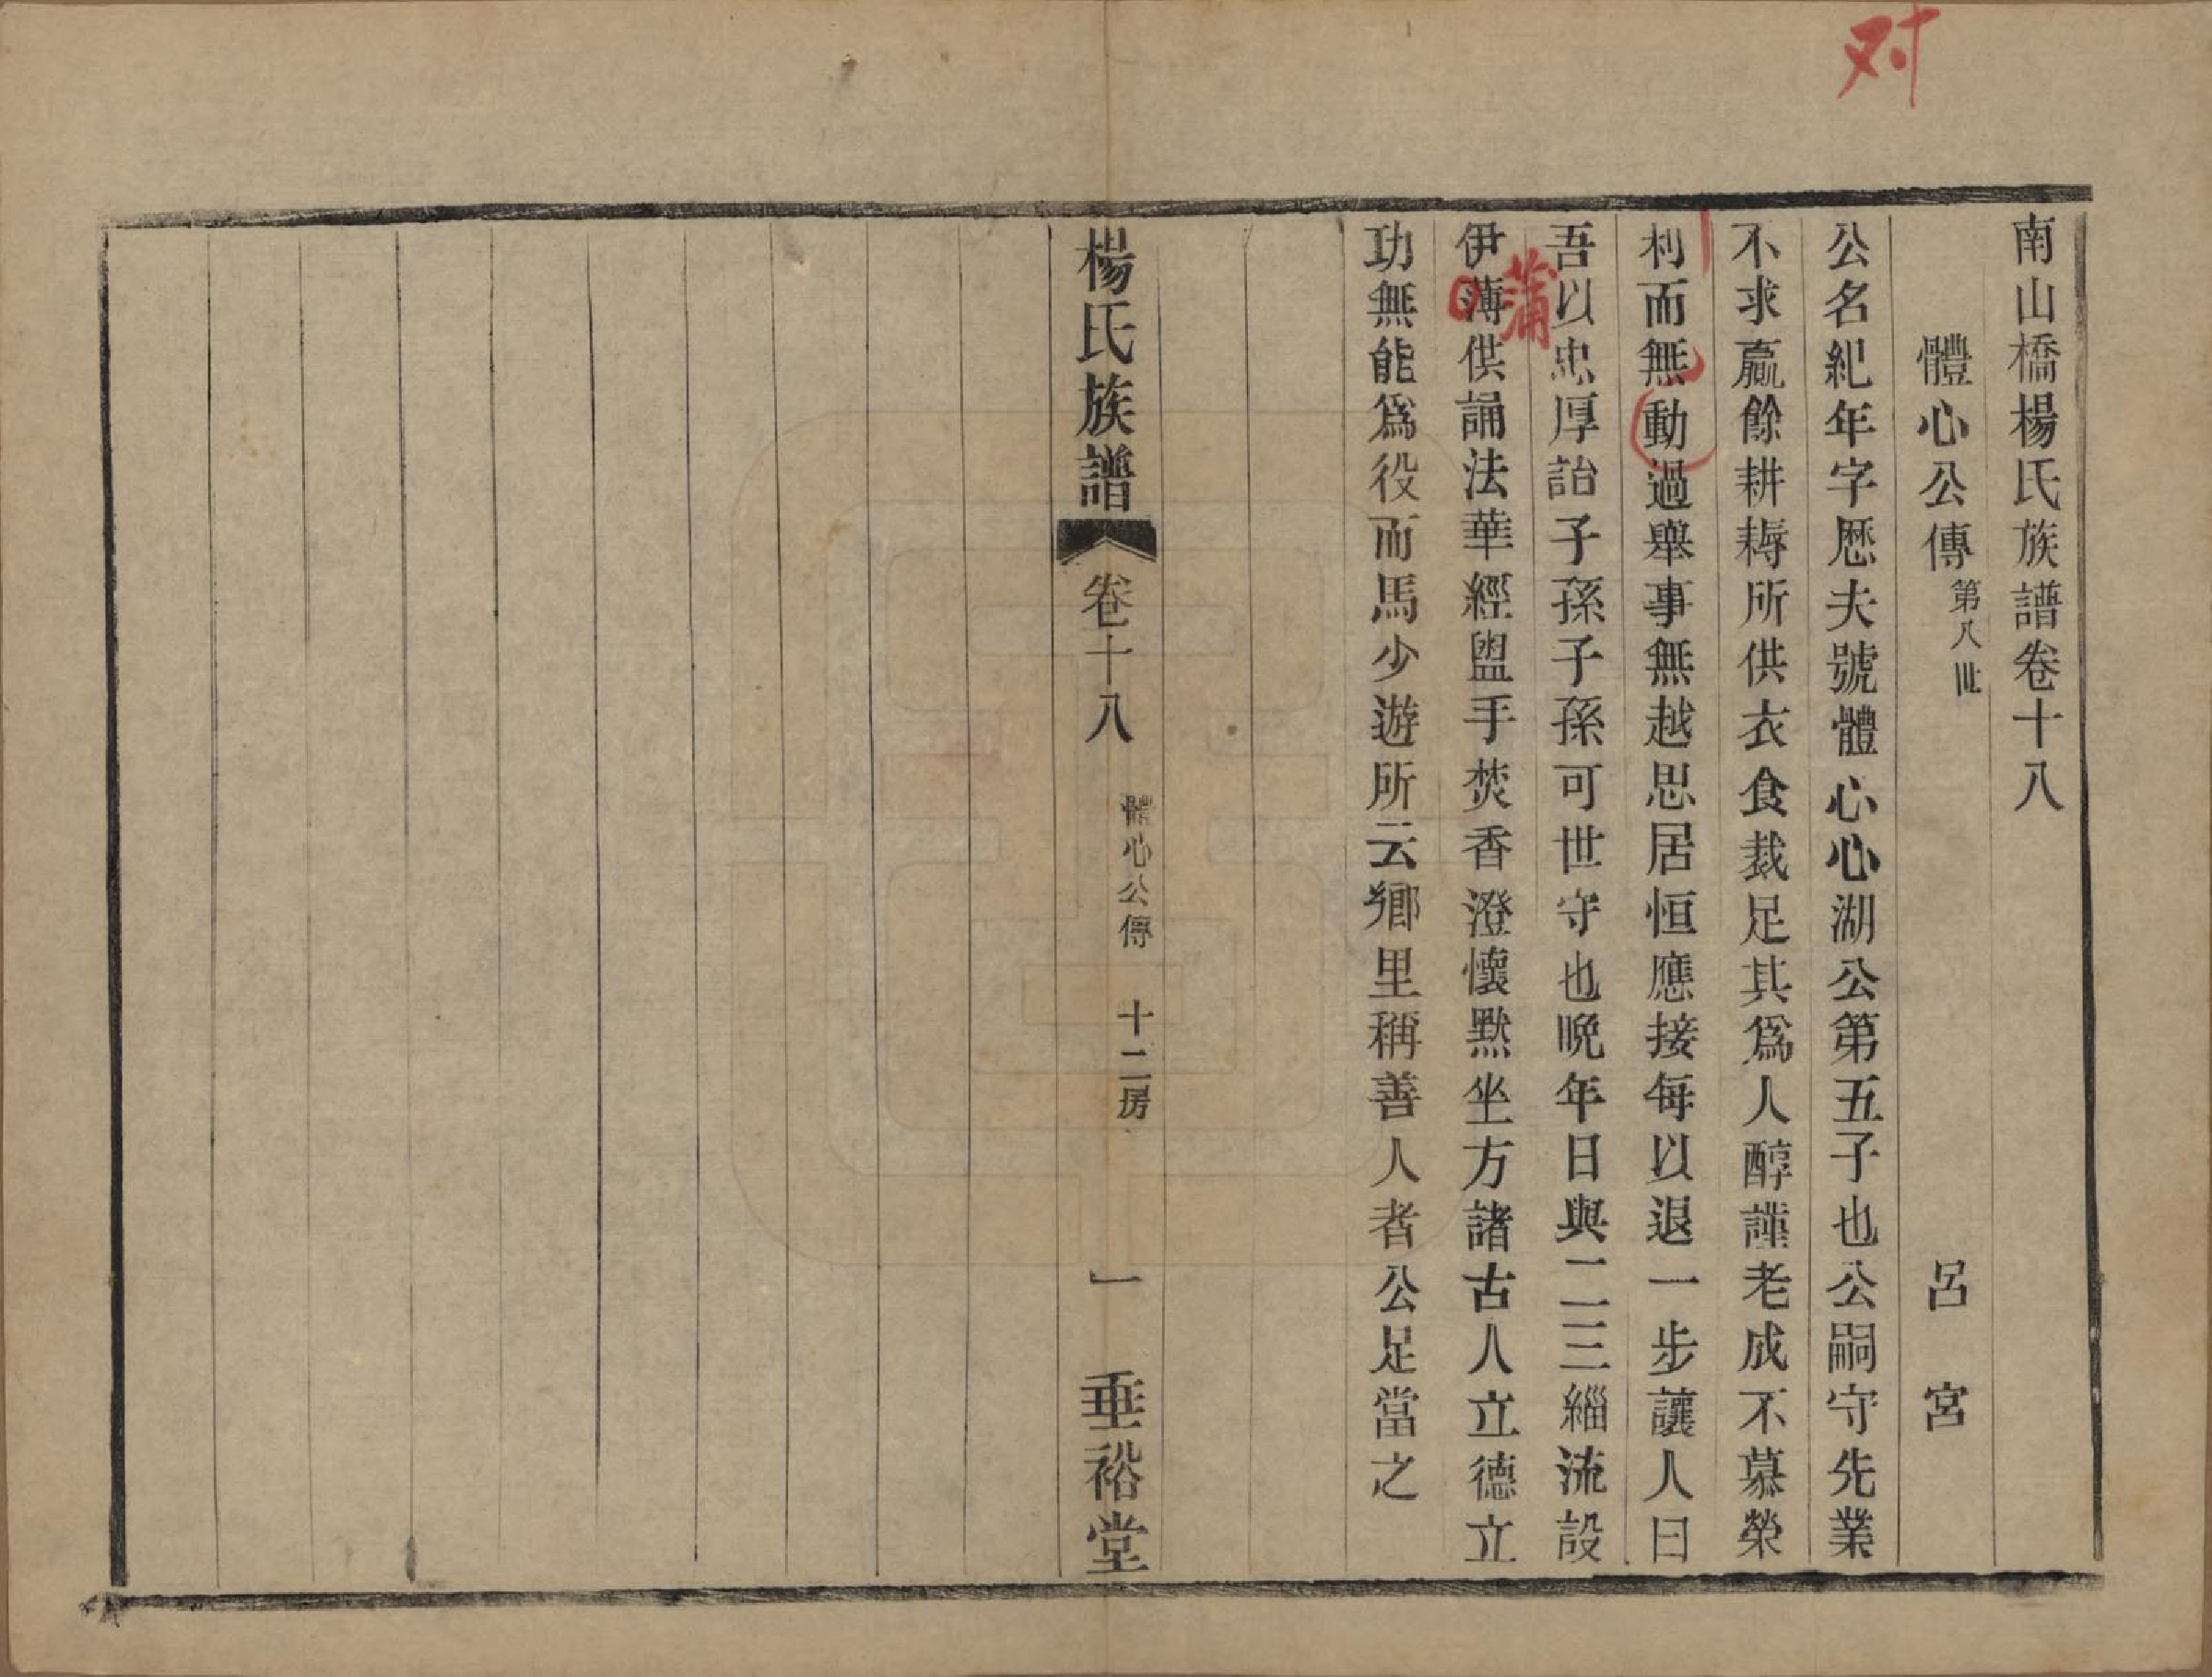 对
南山橋楊氏族譜卷十八
體心公傳 第八世 呂宮
公名紀年字歷夫號體心心湖公第五子也公嗣守先業
不求贏餘耕耨所供衣食裁足其爲人醇謹老成不慕榮
利而無動過舉事無越思居恒應接每以退一步讓人曰
吾以忠厚詒子孫子孫可世守也晩年日與二三緇流設
蒲
伊薄供誦法華經盥手焚香澄懷默坐方諸古人立德立
功無能爲役而馬少遊所云鄉里稱善人者公足當之
楊氏族譜 卷十八 體心公傳 十二房 一 垂裕堂